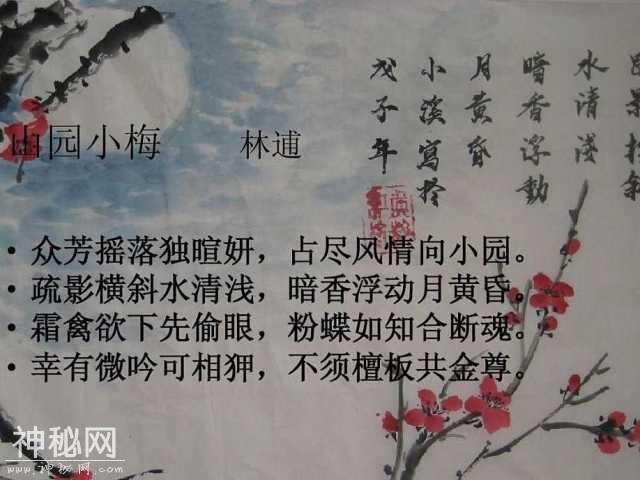 水清淺
暗香浮動
月黃昏
小溪寫於
戊子年
山园小梅 林逋
• 众芳摇落独暄妍，占尽风情向小园。
• 疏影横斜水清浅，暗香浮动月黄昏。
• 霜禽欲下先偷眼，粉蝶如知合断魂。
• 幸有微吟可相狎，不须檀板共金尊。
神秘网
www.神秘网.com